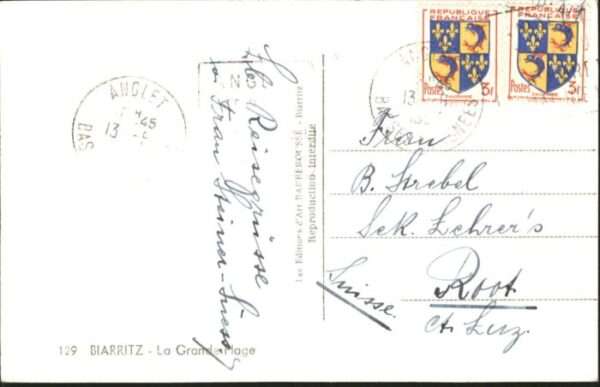 REPUBLIQUE
FRANÇAISE
Postes 3F
REPUBLIQUE
FRANÇAISE
Postes 3F
ANGLET
13
BAS
Reisegrüsse
v. Frau Steiner-Suess
Les Editions d'Art - Biarritz
Reproduction Interdite
Frau
B. Strebel
Sek. Lehrer's
Root
Suisse.
Ct. Luz.
129 BIARRITZ - La Grande Plage